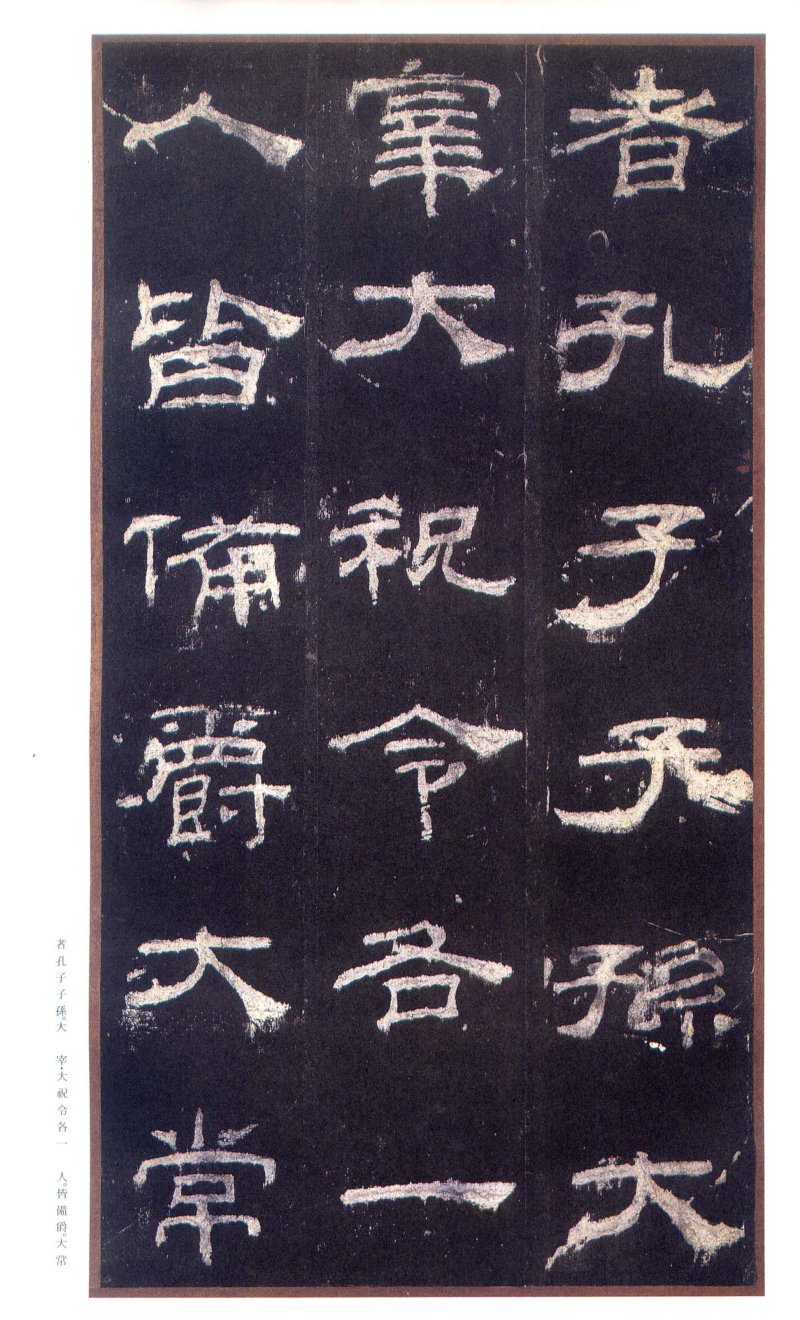 者孔子子孫大
宰大祝令各一
人皆備爵大常
者孔子子孫。大　宰・大祝令各一　人。皆備爵。大常